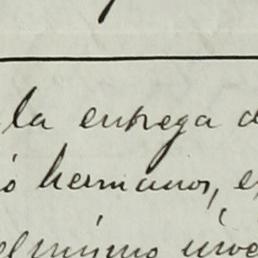 la entrega d
ó hermanos, e
el mismo inve